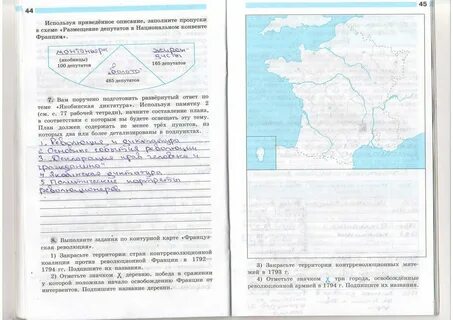 44
Используя приведённое описание, заполните пропуски
в схеме «Размещение депутатов в Национальном конвенте
Франции».
монтаньяры
(якобинцы)
100 депутатов
"болото"
485 депутатов
жирон-
дисты
165 депутатов
7. Вам поручено подготовить развёрнутый ответ по
теме «Якобинская диктатура». Используя памятку 2
(см. с. 77 рабочей тетради), начните составление плана,
в соответствии с которым вы будете освещать эту тему.
План должен содержать не менее трёх пунктов, из
которых два или более детализированы в подпунктах.
1. Революция и диктатура
2. Основные события революции
3. Декларация прав человека и
гражданина
4. Якобинская диктатура
5. Политические портреты
революционеров
8. Выполните задания по контурной карте «Француз-
ская революция».
1) Закрасьте территории стран контрреволюционной
коалиции против революционной Франции в 1792—
1794 гг. Подпишите их названия.
2) Отметьте значком X деревню, победа в сражении
у которой положила начало освобождению Франции от
интервентов. Подпишите название деревни.
45
3) Закрасьте территории контрреволюционных мяте-
жей в 1793 г.
4) Отметьте значком X три города, освобождённые
революционной армией в 1794 г. Подпишите их названия.